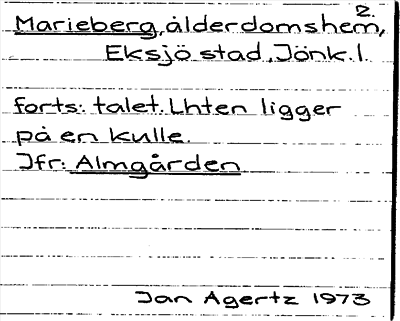 2.
Marieberg, ålderdomshem,
Eksjö stad, Jönk. l.
forts: talet. Lhten ligger
på en kulle.
Jfr: Almgården
Jan Agertz 1973